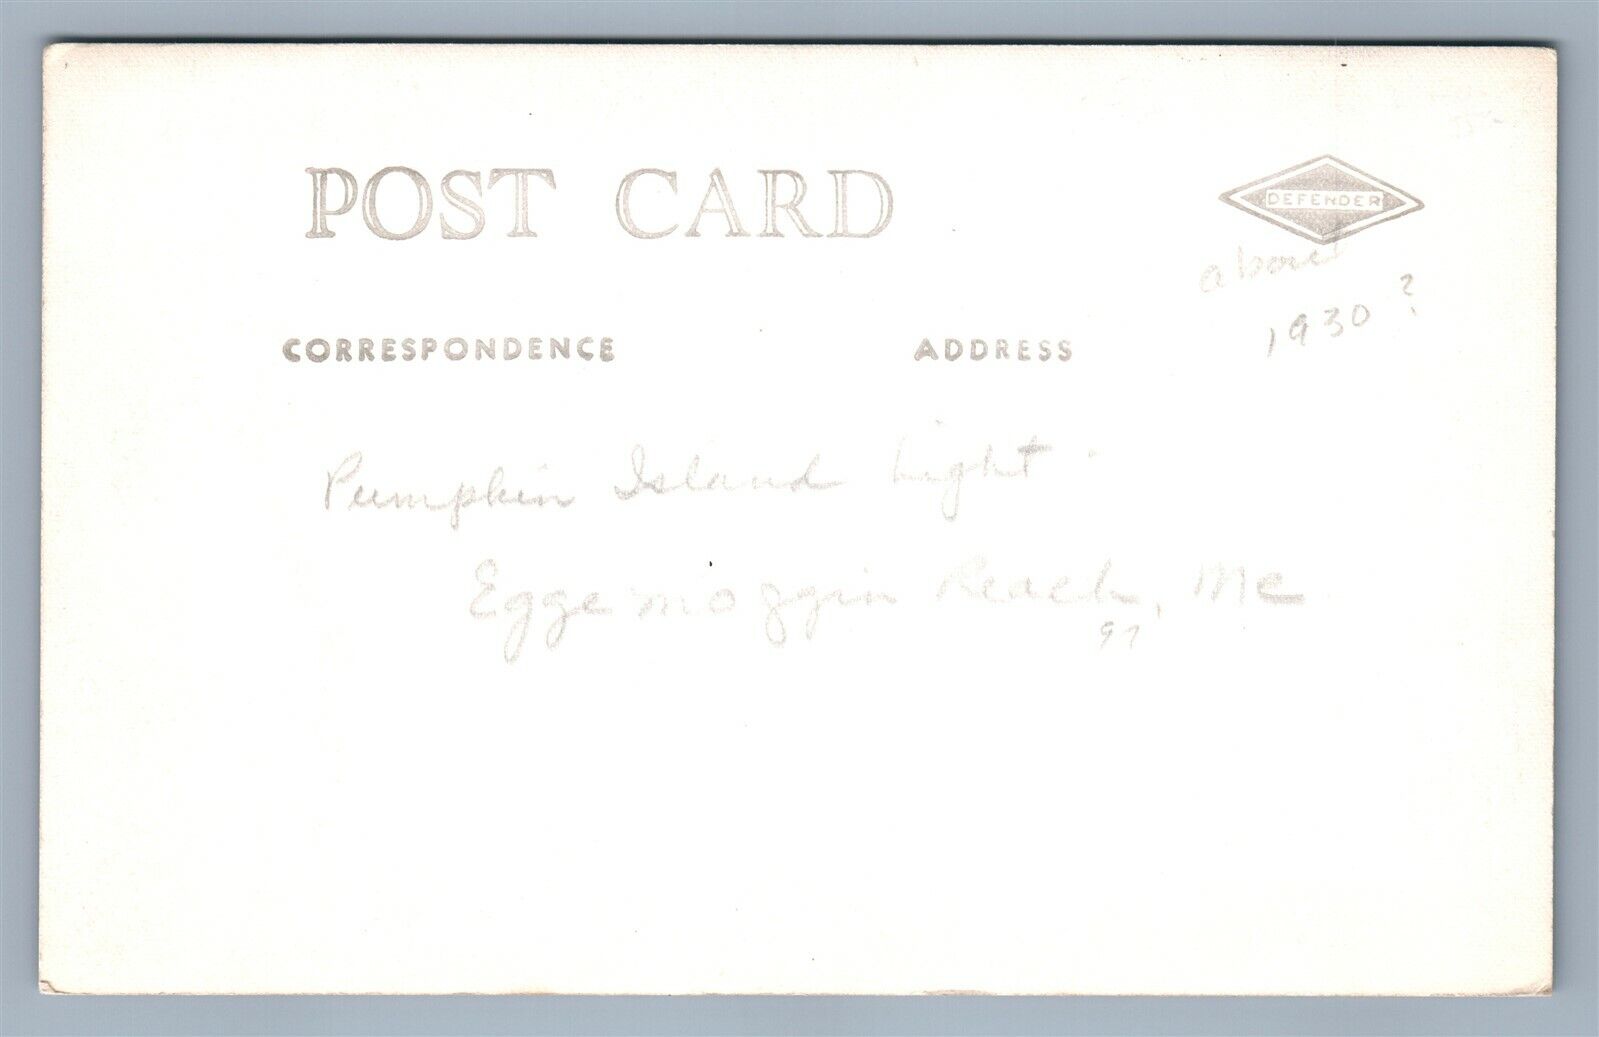 POST CARD
DEFENDER
about
1930?
CORRESPONDENCE
ADDRESS
Pumpkin Island Light
Eggemoggin Reach, Me
97